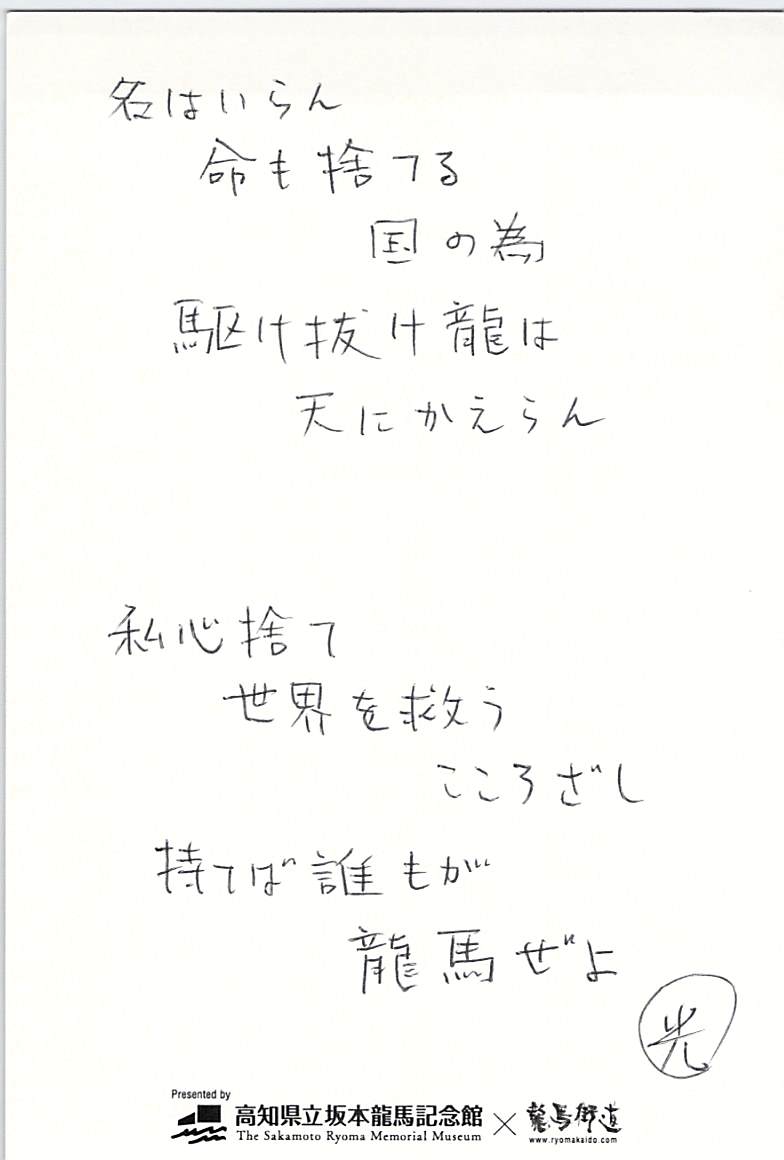 名はいらん
命も捨てる
国の為
駆け抜け龍は
天にかえらん
私心捨て
世界を救う
こころざし
持てば誰もが
龍馬ぜよ
光
Presented by
高知県立坂本龍馬記念館
The Sakamoto Ryoma Memorial Museum
×
龍馬街道
www.ryomakaido.com